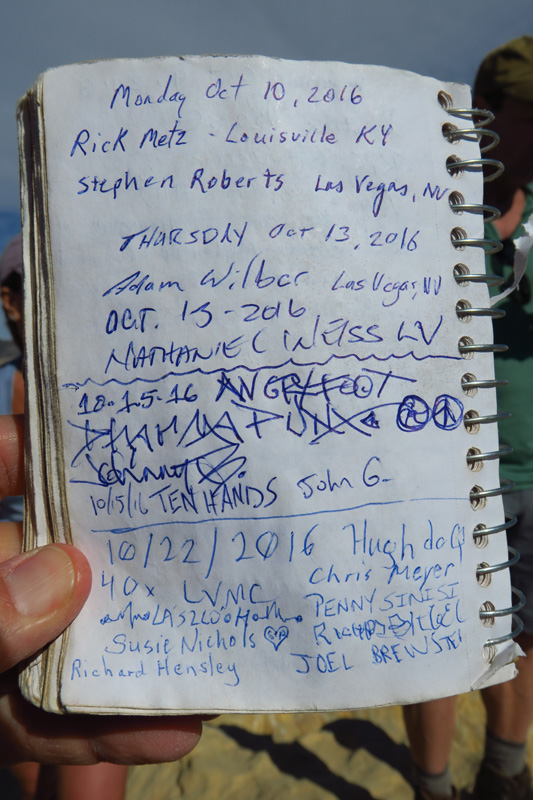 Monday Oct 10, 2016
Rick Metz - Louisville KY
Stephen Roberts Las Vegas, NV
THURSDAY Oct 13, 2016
Adam Wilber Las Vegas, NV
OCT. 15-2016
NATHANIEL WEISS LV
10.1.5-16
10/15/16 TEN HANDS John G.
10/22/2016 Hugh
40x LVMC Chris Meyer
LÁSZLÓ PENNY SINISI
Susie Nichols
Richard Hensley JOEL BREWSKI